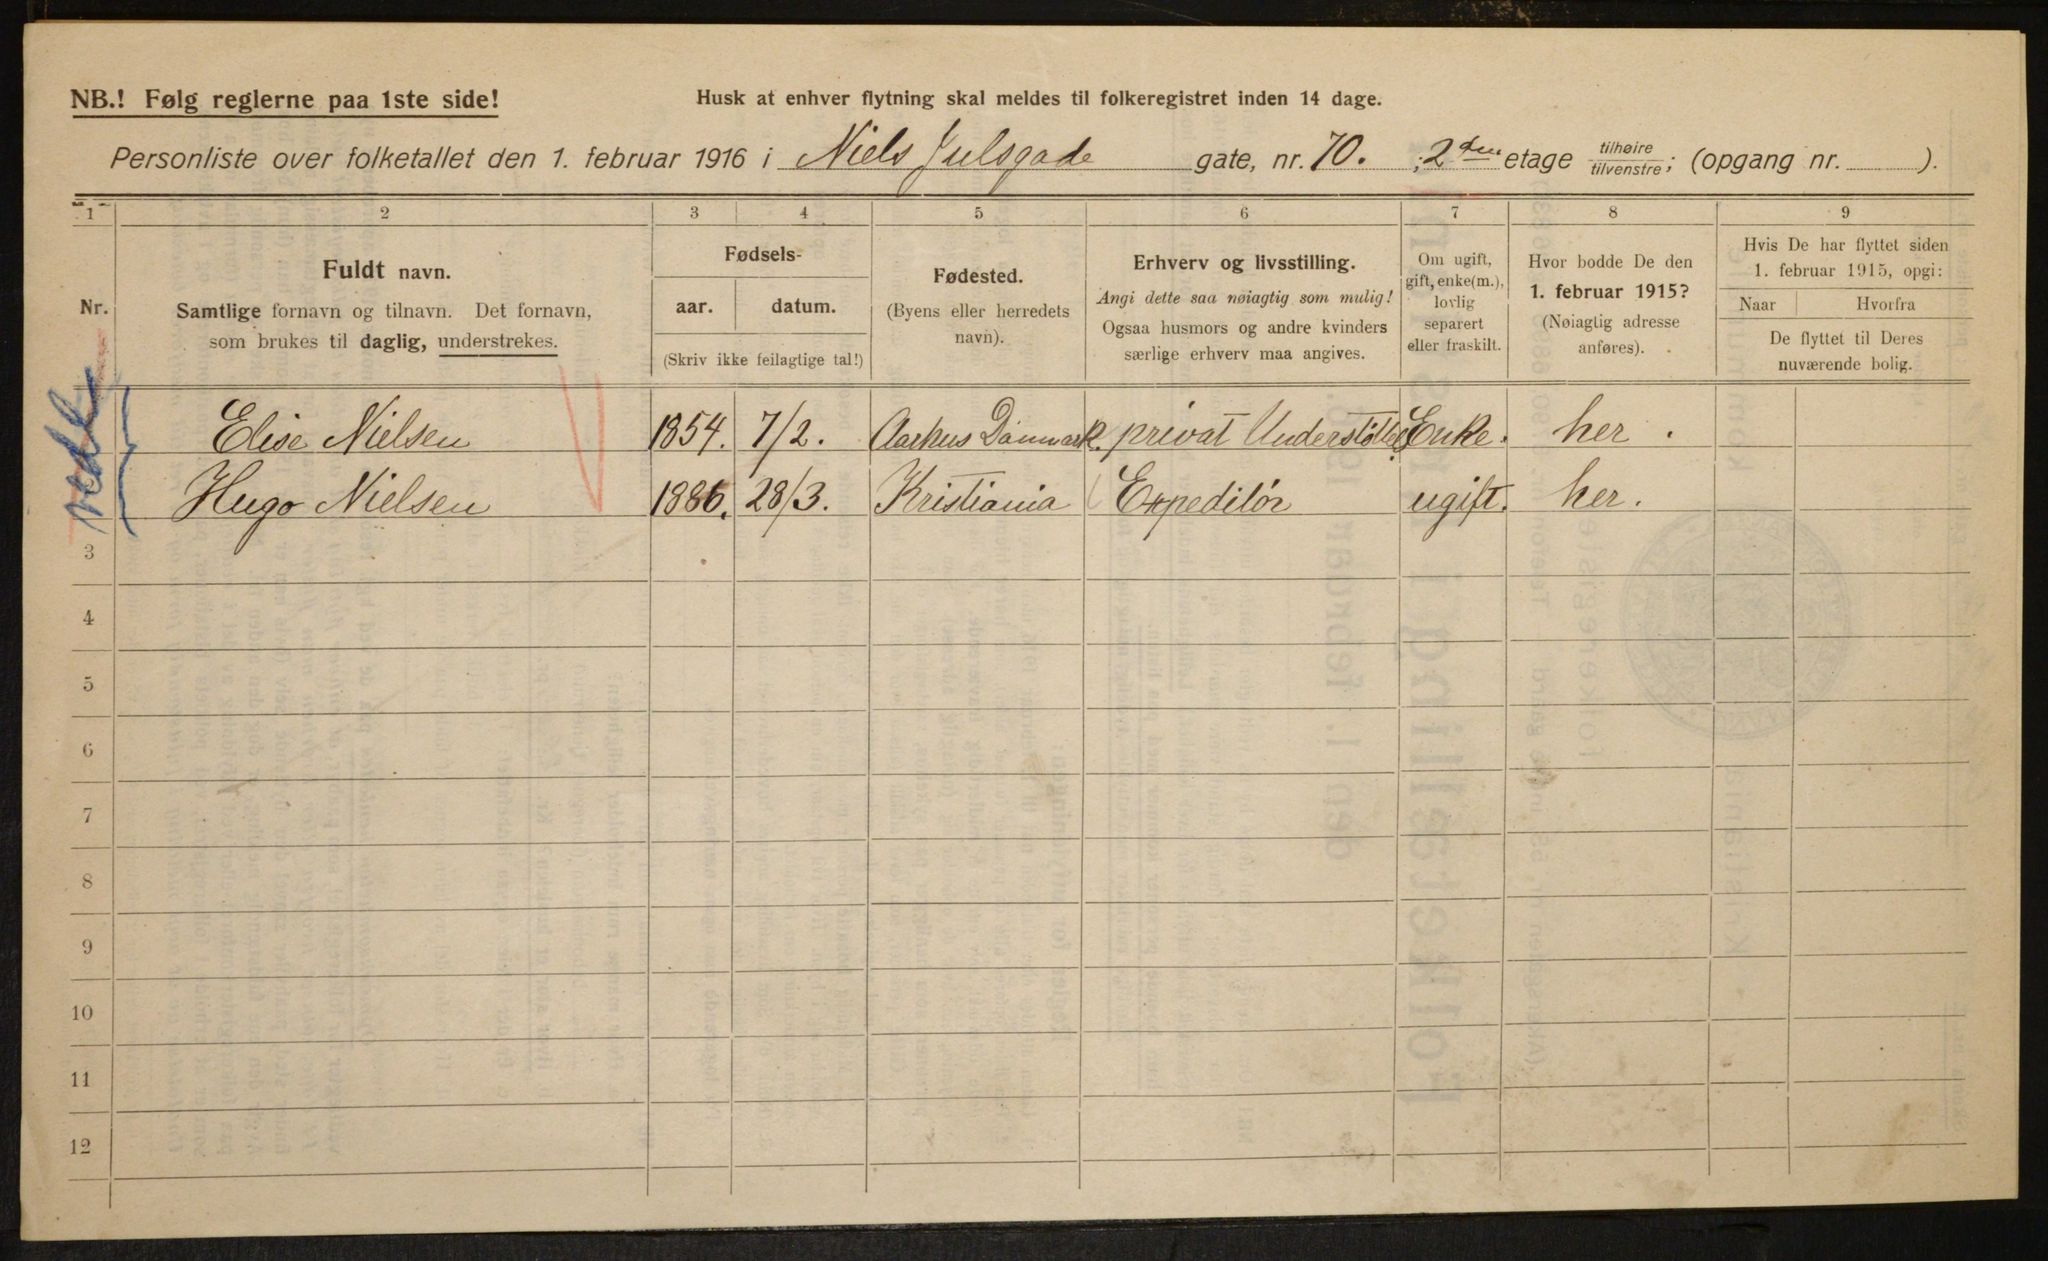 NB.! Følg reglerne paa 1ste side!
Husk at enhver flytning skal meldes til folkeregistret inden 14 dage.
Personliste over folketallet den 1. februar 1916 i Niels Julsgade gate, nr. 70. ; 2den etage tilhøire/tilvenstre; (opgang nr. ).
1 2 3 4 5 6 7 8 9
Nr.
Fuldt navn.
Samtlige fornavn og tilnavn. Det fornavn,
som brukes til daglig, understrekes.
Fødsels-
aar. datum.
(Skriv ikke feilagtige tal!)
Fødested.
(Byens eller herredets
navn).
Erhverv og livsstilling.
Angi dette saa nøiagtig som mulig!
Ogsaa husmors og andre kvinders
særlige erhverv maa angives.
Om ugift,
gift, enke(m.),
lovlig
separert
eller fraskilt.
Hvor bodde De den
1. februar 1915?
(Nøiagtig adresse
anføres).
Hvis De har flyttet siden
1. februar 1915, opgi:
Naar Hvorfra
De flyttet til Deres
nuværende bolig.
Elise Nielsen 1854. 7/2. Aarhus Danmark. privat Understøttet Enke. her.
Hugo Nielsen 1886. 28/3. Kristiania Expeditör ugift. her.
3
4
5
6
7
8
9
10
11
12